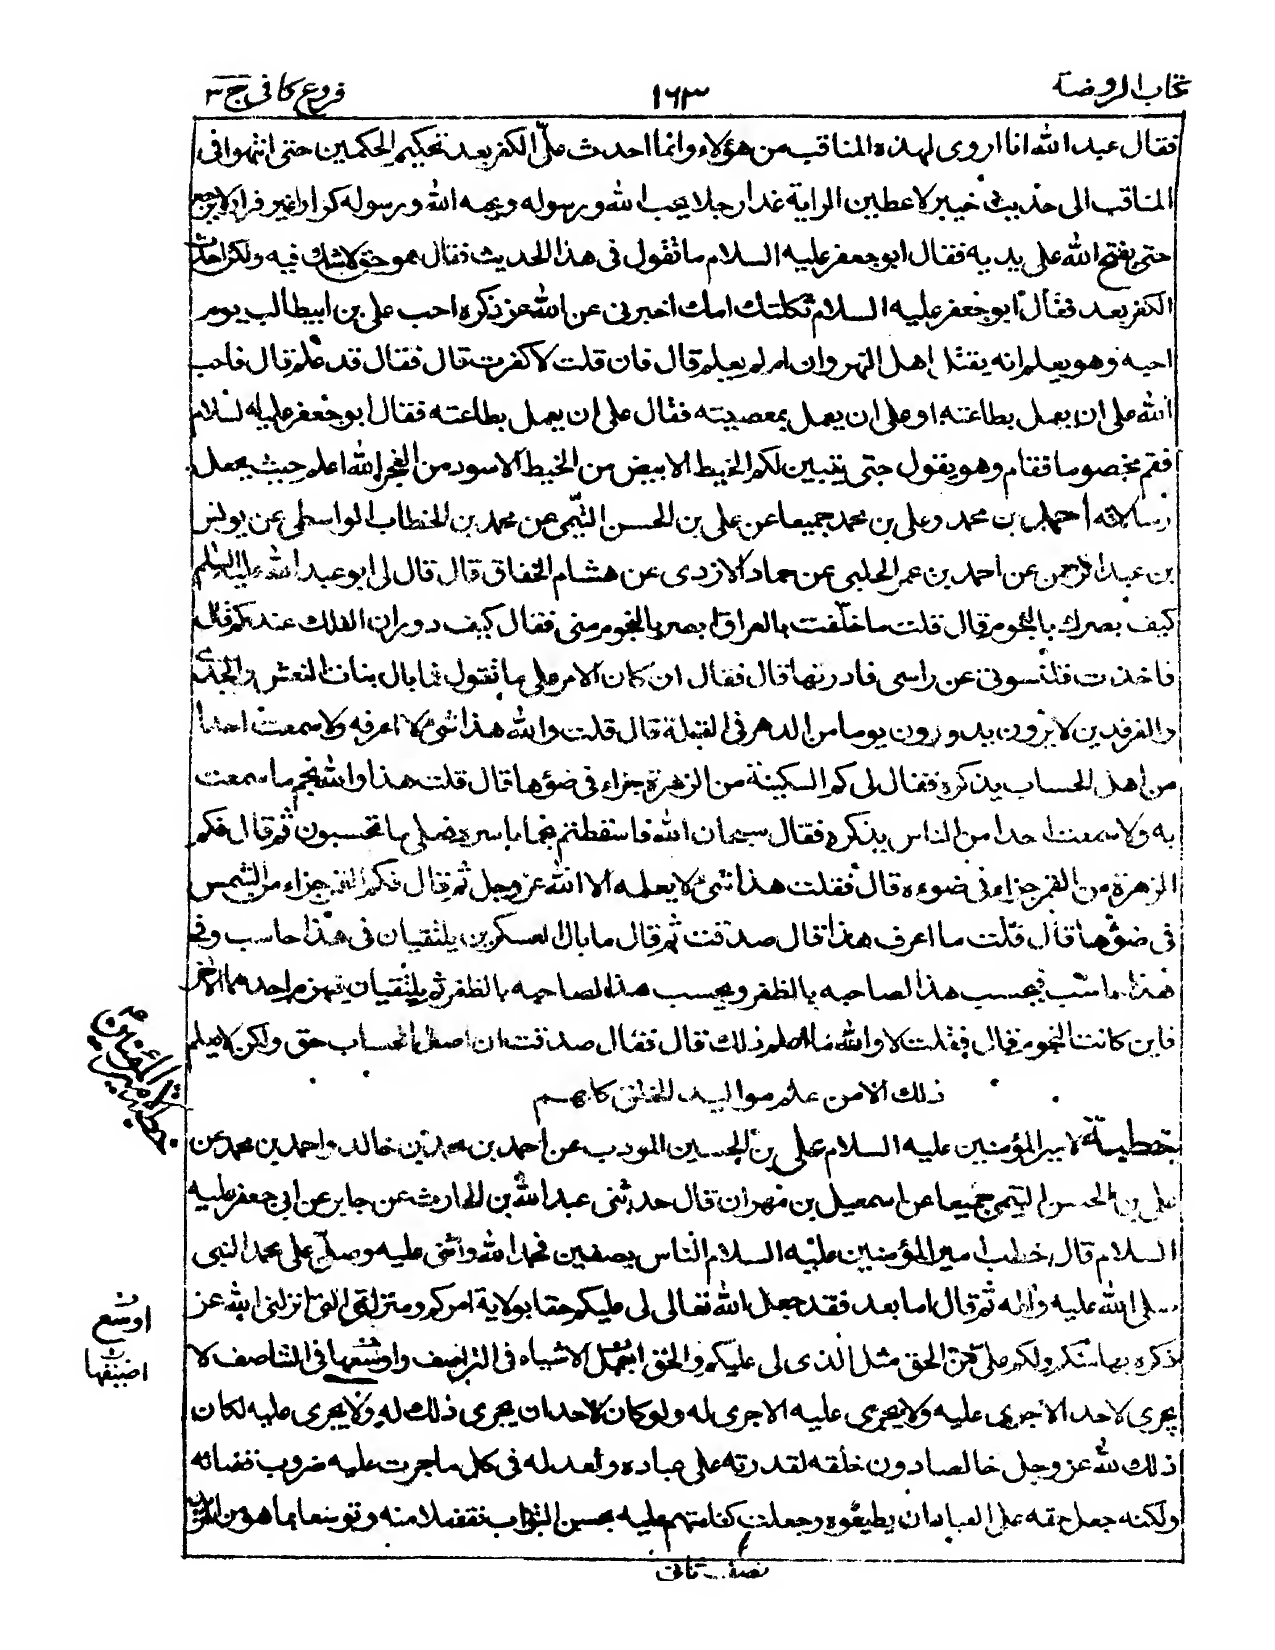 كتاب الروضة
١٦٣
فروع كافى ج ٣
فقال عبد الله انا اروى لهذه المناقب من هؤلاء وانما احدث علىّ الكفر بعد تحكيم الحكمين حتى انتهوا فى
المناقب الى حديث خيبر لاعطين الراية غدا رجلا يحب الله ورسوله ويحبه الله ورسوله كرارا غير فرار لا يرجع
حتى يفتح الله على يديه فقال ابو جعفر عليه السلام ما تقول فى هذا الحديث فقال هو حق لا شك فيه ولكن احدث
الكفر بعد فقال ابو جعفر عليه السلام ثكلتك امك اخبرنى عن الله عز ذكره احب على بن ابيطالب يوم
احبه وهو يعلم انه يقتل اهل النهروان ام لم يعلم قال فان قلت لا كفرت قال فقال قد علم قال فاحب
الله على ان يعمل بطاعته او على ان يعمل بمعصيته فقال على ان يعمل بطاعته فقال ابو جعفر عليه لسلام
فقم مخصوما فقام وهو يقول حتى يتبين لكم الخيط الابيض من الخيط الاسود من الفجر الله اعلم حيث يجعل
رسالاته احمد بن محمد وعلى بن محمد جميعا عن على بن الحسن التيمى عن محمد بن الخطاب الواسطى عن يونس
بن عبد الرحمن عن احمد بن عمر الحلبى عن حماد الازدى عن هشام الخفاق قال قال لى ابو عبد الله عليه السلم
كيف بصرك بالنجوم قال قلت ما خلّفت بالعراق ابصر بالنجوم منى فقال كيف دوران الفلك عندكم قال
فاخذت قلنسوتى عن راسى فادرتها قال فقال ان كان الامر على ما تقول فما بال بنات النعش والجدى
والفرقدين لا يرون يدورون يوما من الدهر فى القبلة قال قلت والله هذا شئ لا اعرفه ولا سمعت احدا
من اهل الحساب يذكره فقال لى كم السكينة من الزهرة جزاء فى ضوءها قال قلت هذا والله نجم ما سمعت
به ولا سمعت احدا من الناس يذكره فقال سبحان الله فاسقطتم نجما باسره فعلى ما تحسبون ثم قال فكم
الزهرة من القمر جزاء فى ضوءه قال فقلت هذا شئ لا يعلمه الا الله عز وجل ثم قال فكم القمر جزاء من الشمس
فى ضوءها قال قلت ما اعرف هذا قال صدقت ثم قال ما بال العسكرين يلتقيان فى هذا حاسب وفى
هذا حاسب فيحسب هذا لصاحبه بالظفر ويحسب هذا لصاحبه بالظفر ثم يلتقيان فيهزم احدهما الاخر
فاين كانت النجوم قال فقلت لا والله ما اعلم ذلك قال فقال صدقت ان اصل الحساب حق ولكن لا يعلم
ذلك الا من علم مواليد الخلق كلهم
خطبة لامير المؤمنين عليه السلام على بن الحسين المودب عن احمد بن محمد بن خالد واحمد بن محمد عن
على بن الحسن التيمى جميعا عن اسمعيل بن مهران قال حدثنى عبد الله بن الحارث عن جابر عن ابى جعفر عليه
السلام قال خطب امير المؤمنين عليه السلام الناس بصفين فحمد الله واثنى عليه وصلى على محمد النبى
صلى الله عليه واله ثم قال اما بعد فقد جعل الله تعالى لى عليكم حقا بولاية امركم ومنزلتى التى انزلنى الله عز
ذكره بها منكم ولكم على من الحق مثل الذى لى عليكم والحق اجمل الاشياء فى التواصف واوسعها فى التناصف لا
يجرى لاحد الا جرى عليه ولا يجرى عليه الا جرى له ولو كان لاحد ان يجرى ذلك له ولا يجرى عليه لكان
ذلك لله عز وجل خالصا دون خلقه لقدرته على عباده ولعدله فى كل ما جرت عليه ضروب قضائه
ولكنه جعل حقه على العباد ان يطيعوه وجعلت كفارتهم عليه بحسن الثواب تفضلا منه وتوسعا بما هو من المزيد
خطبة لامير المؤمنين ع
اوسع
نصف ثانى